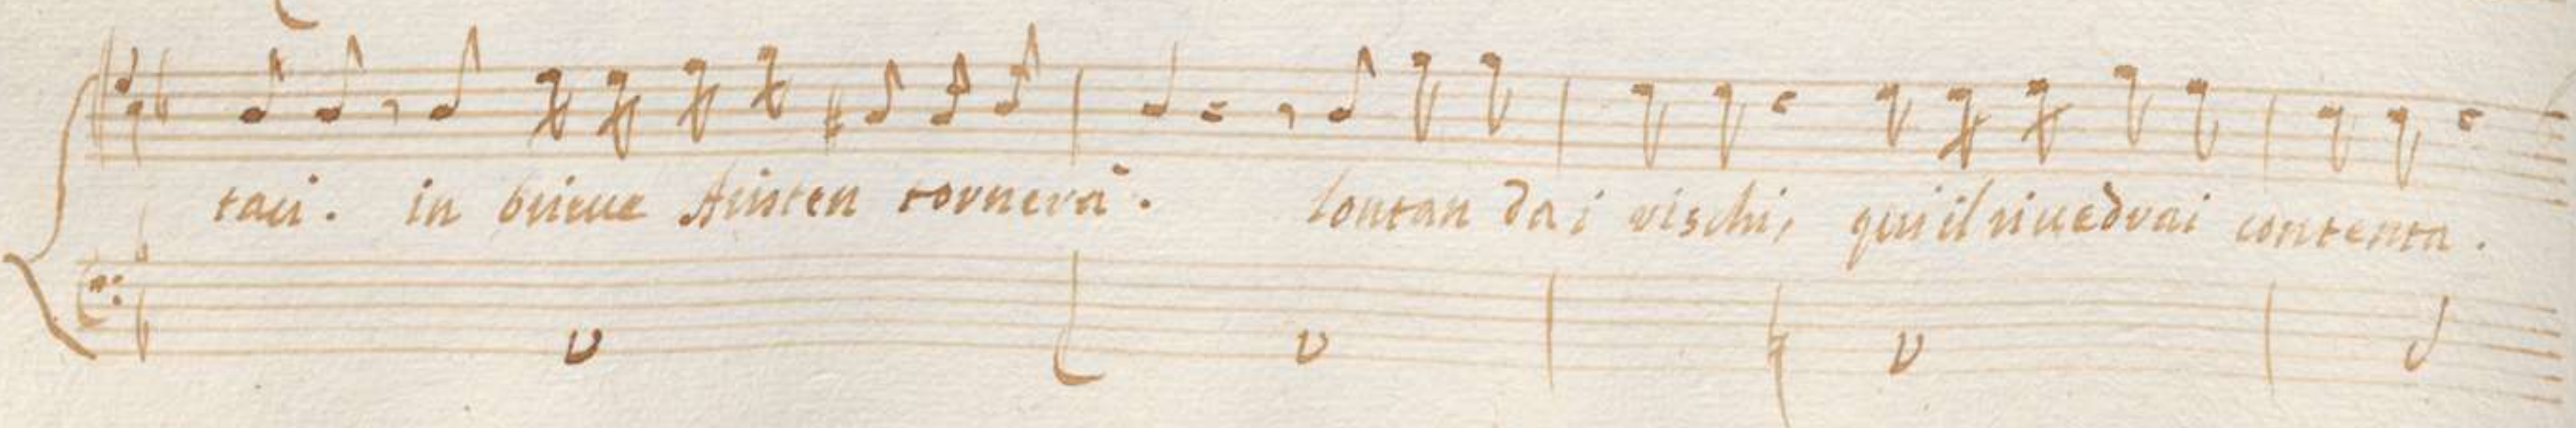 taci. in brieue Aristen tornerà. lontan dai rischi, qui il riuedrai contenta.